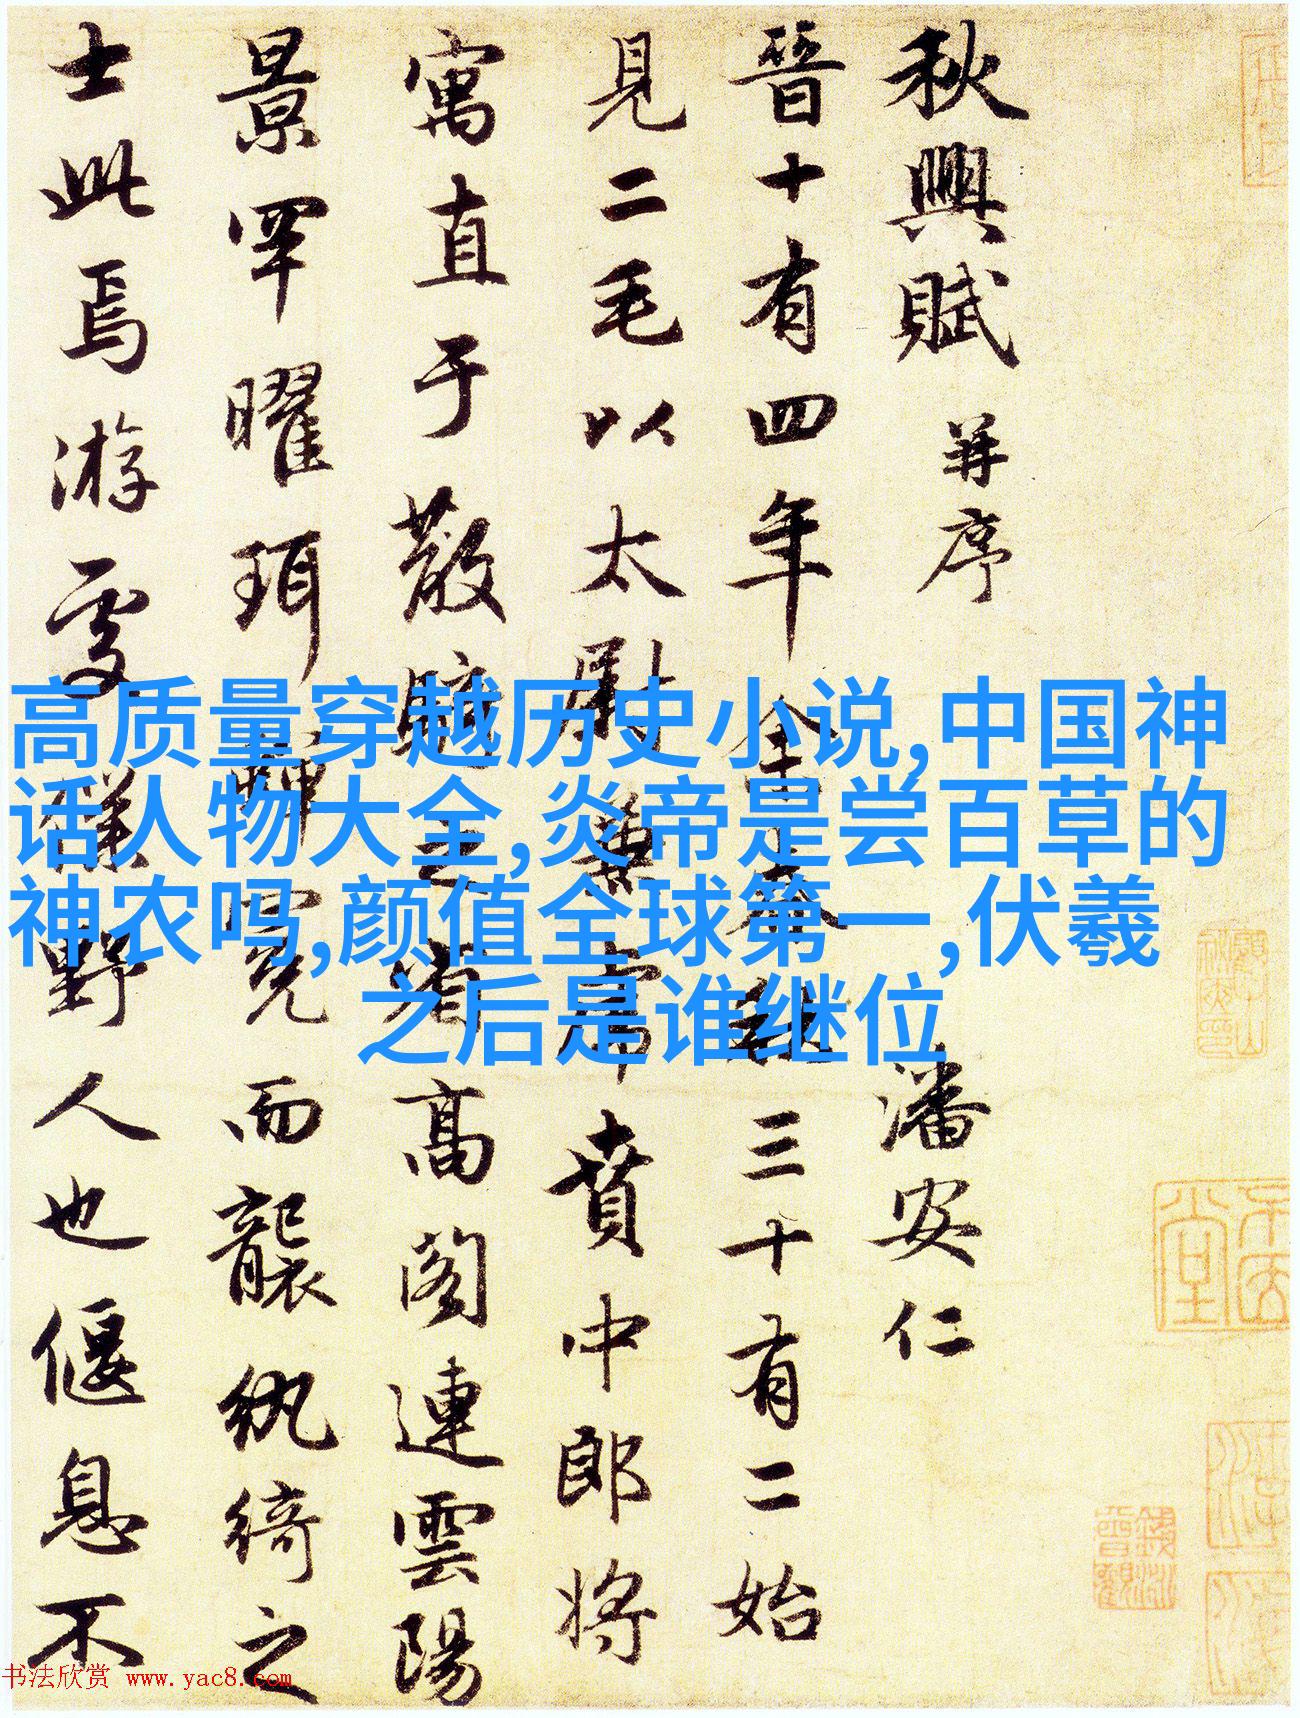 秋興賦 并序 潘安仁
晉十有四年 余春秋三十有二始
見二毛以太尉掾兼虎賁中郎将
寓直于散騎之省高阁連雲陽
景罕曜珥蝉冕而襲纨綺之
士此焉游處 僕野人也偃息不
高质量穿越历史小说,中国神
话人物大全,炎帝是尝百草的
神农吗,颜值全球第一,伏羲
之后是谁继位
书法欣赏 www.yac8.com